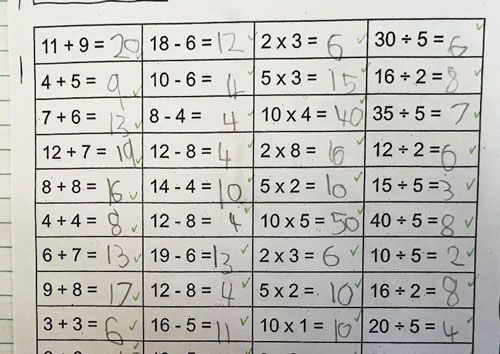 11 + 9 = 20 18 - 6 = 12 2 x 3 = 6 30 ÷ 5 = 6
4 + 5 = 9 10 - 6 = 4 5 x 3 = 15 16 ÷ 2 = 8
7 + 6 = 13 8 - 4 = 4 10 x 4 = 40 35 ÷ 5 = 7
12 + 7 = 19 12 - 8 = 4 2 x 8 = 16 12 ÷ 2 = 6
8 + 8 = 16 14 - 4 = 10 5 x 2 = 10 15 ÷ 5 = 3
4 + 4 = 8 12 - 8 = 4 10 x 5 = 50 40 ÷ 5 = 8
6 + 7 = 13 19 - 6 = 13 2 x 3 = 6 10 ÷ 5 = 2
9 + 8 = 17 12 - 8 = 4 5 x 2 = 10 16 ÷ 2 = 8
3 + 3 = 6 16 - 5 = 11 10 x 1 = 10 20 ÷ 5 = 4